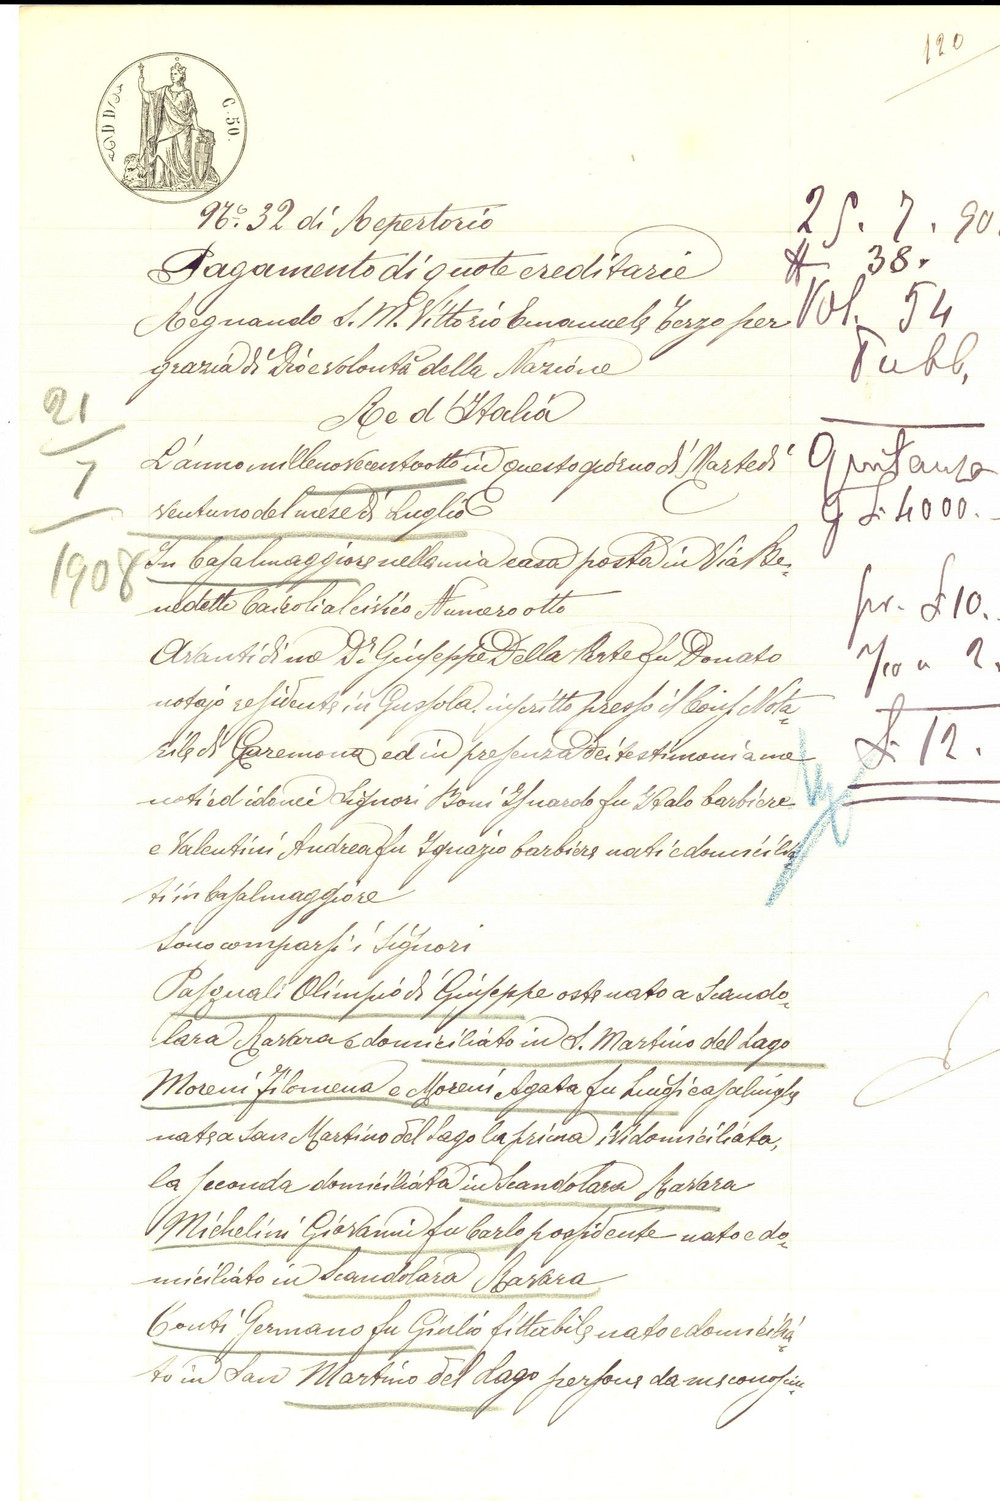 120
C. 50.
N.o 32 di Repertorio
Pagamento di quote ereditarie
Regnando S. M. Vittorio Emanuele Terzo per
grazia di Dio e volontà della Nazione
Re d'Italia
L'anno millenovecentootto in questo giorno di Martedì
ventuno del mese di Luglio
In Casalmaggiore nella mia casa posta in Via Be-
nedetto Cairoli al civico Numero otto
Avanti di me Dr. Giuseppe Della Parte fu Donato
notajo residente in Gussola, inscritto presso il Cons. Nota-
rile di Cremona ed in presenza dei testimoni a me
noti ed idonei Signori Boni Isnardo fu Italo barbiere
e Valentini Andrea fu Ignazio barbiere nati e domicilia-
ti in Casalmaggiore
Sono comparsi i Signori
Pasquali Olimpio di Giuseppe oste nato a Scando-
lara Ravara e domiciliato in S. Martino del Lago
Moreni Filomena e Moreni Agata fu Luigi casalinghe
nate a San Martino del Lago la prima ivi domiciliata,
la seconda domiciliata in Scandolara Ravara
Michelini Giovanni fu Carlo possidente nato e do-
miciliato in Scandolara Ravara
Conti Germano fu Giulio fittabile nato e domicilia-
to in San Martino del Lago persone da me conosciu-
21
7
1908
25. 7. 90
# 38.
Vol. 54
Pubb,
Quitanza
£ 4000.
pr. £ 10.
2.
£ 12.